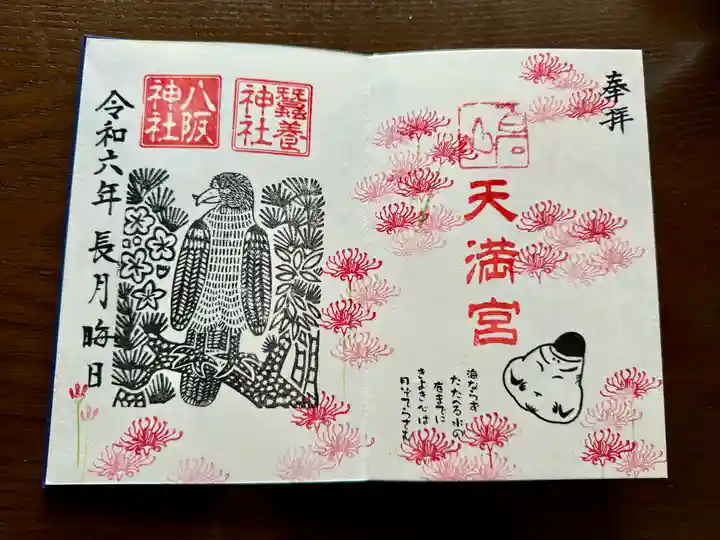 奉拝
天満宮
海ならず
たたへる水の
底までに
きよき心は
月ぞてらさむ
蠶養
神社
八阪
神社
令和六年 長月 晦日